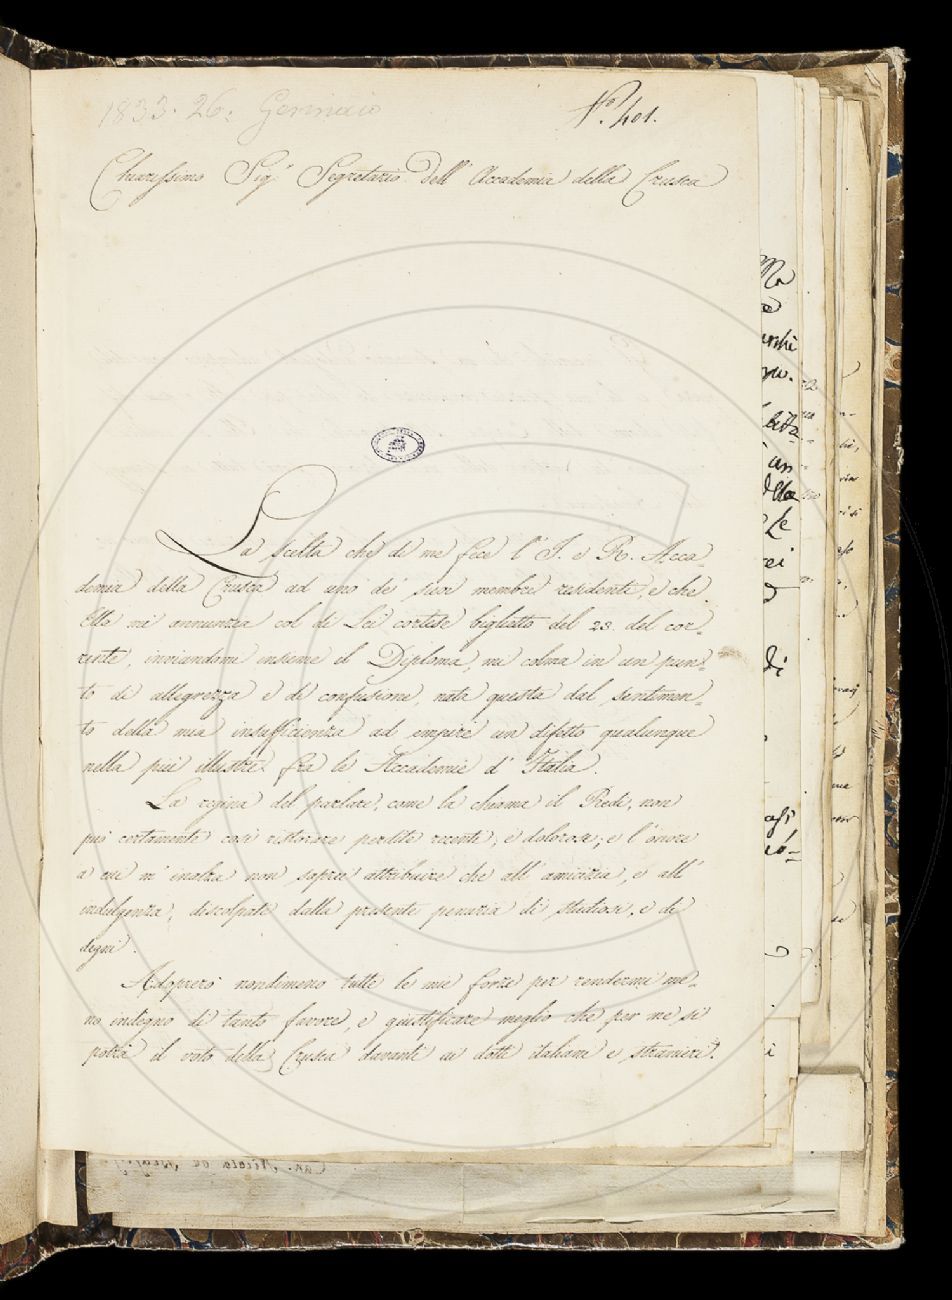 1833. 26: Gennaio
N.° 401.
Chiarissimo Sig.r Segretario dell' Accademia della Crusca
La scelta che di me fece l' I. e R. Acca-
demia della Crusca ad uno de' suoi membri residenti, e che
Ella mi annunzia col di Lei cortese biglietto del 23. del cor-
rente, inviandomi insieme il Diploma, mi colma in un pun-
to di allegrezza e di confusione, nata questa dal sentimen-
to della mia insufficienza ad empire un difetto qualunque
nella più illustre fra le Accademie d' Italia.
La regina del parlare, come la chiama il Redi, non
può certamente così ristorare perdite recenti, e dolorose; e l' onore
a cui m' inalza non saprei attribuire che all' amicizia, e all'
indulgenza, discolpate dalla presente penuria di studiosi, e di
degni.
Adoprerò nondimeno tutte le mie forze per rendermi me-
no indegno di tanto favore, e giustificare meglio che per me si
potrà il voto della Crusca davanti ai dotti italiani e stranieri.